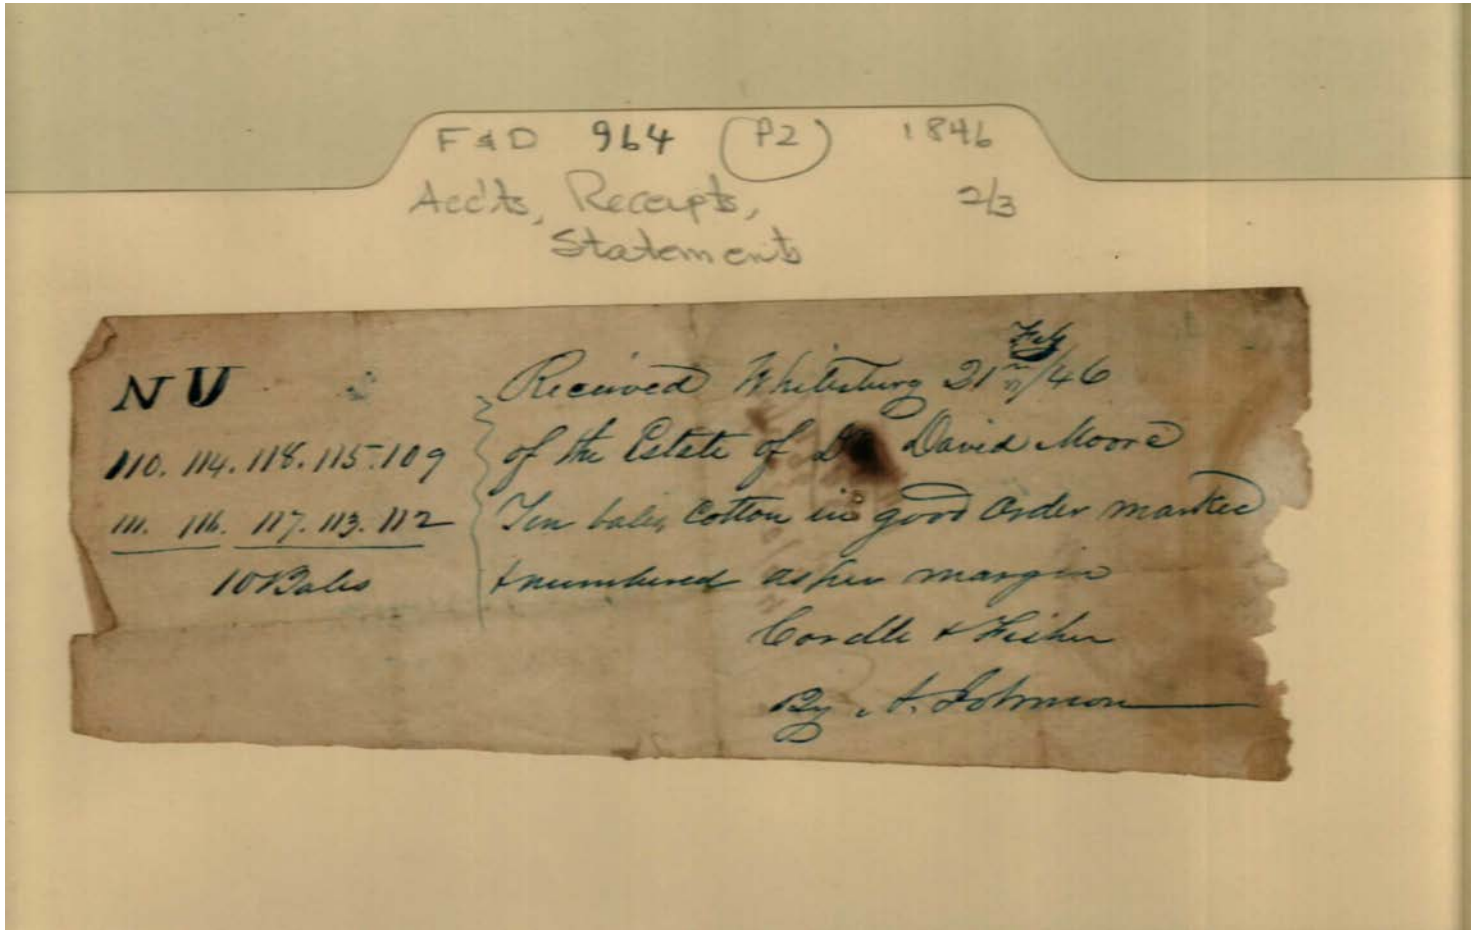 F & D 964 (P2) 1846
Acc'ts, Receipts, 2/3
Statements
N U
110. 114. 118. 115. 109
111. 116. 117. 113. 112
10 Bales
Received Whitesburg 21 Feby /46
of the Estate of Dr David Moore
Ten bales Cotton in good order marked
& numbered as per margin
& Fisher
By A. Johnson